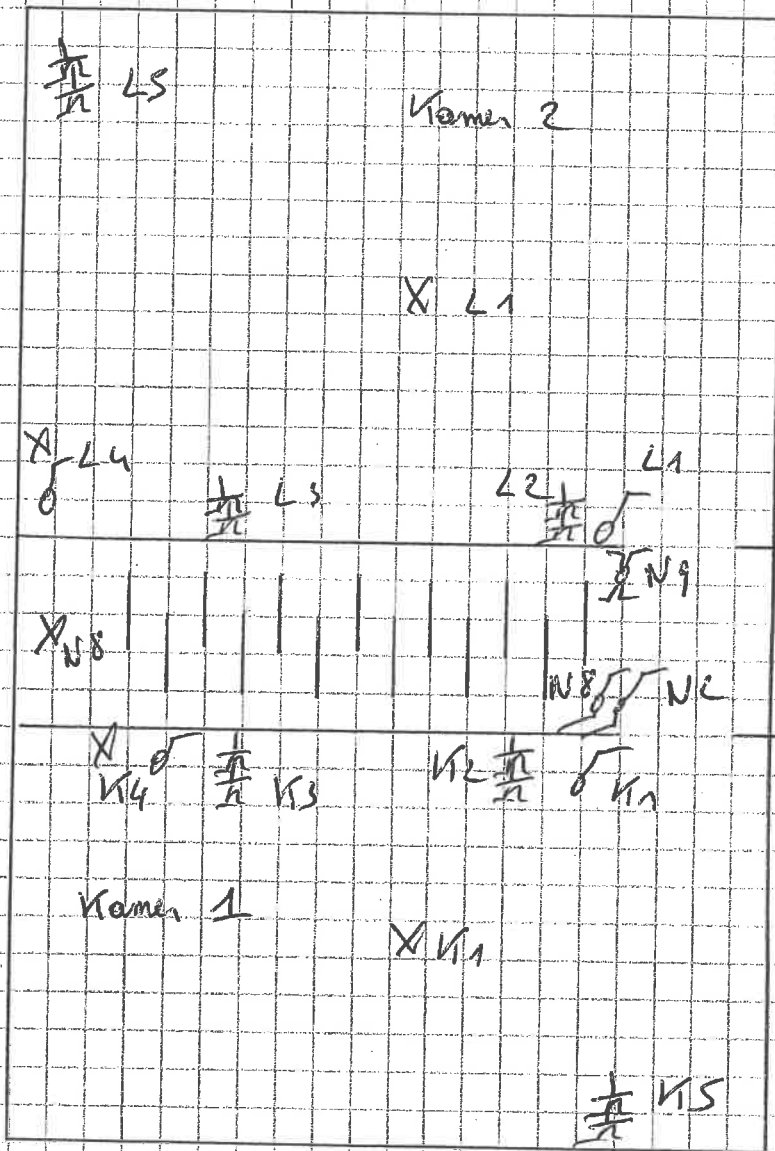 L5
Kamer 2
L1
L4
L3
L2
L1
N9
N8
N8
N2
K4
K3
K2
K1
Kamer 1
K1
K5